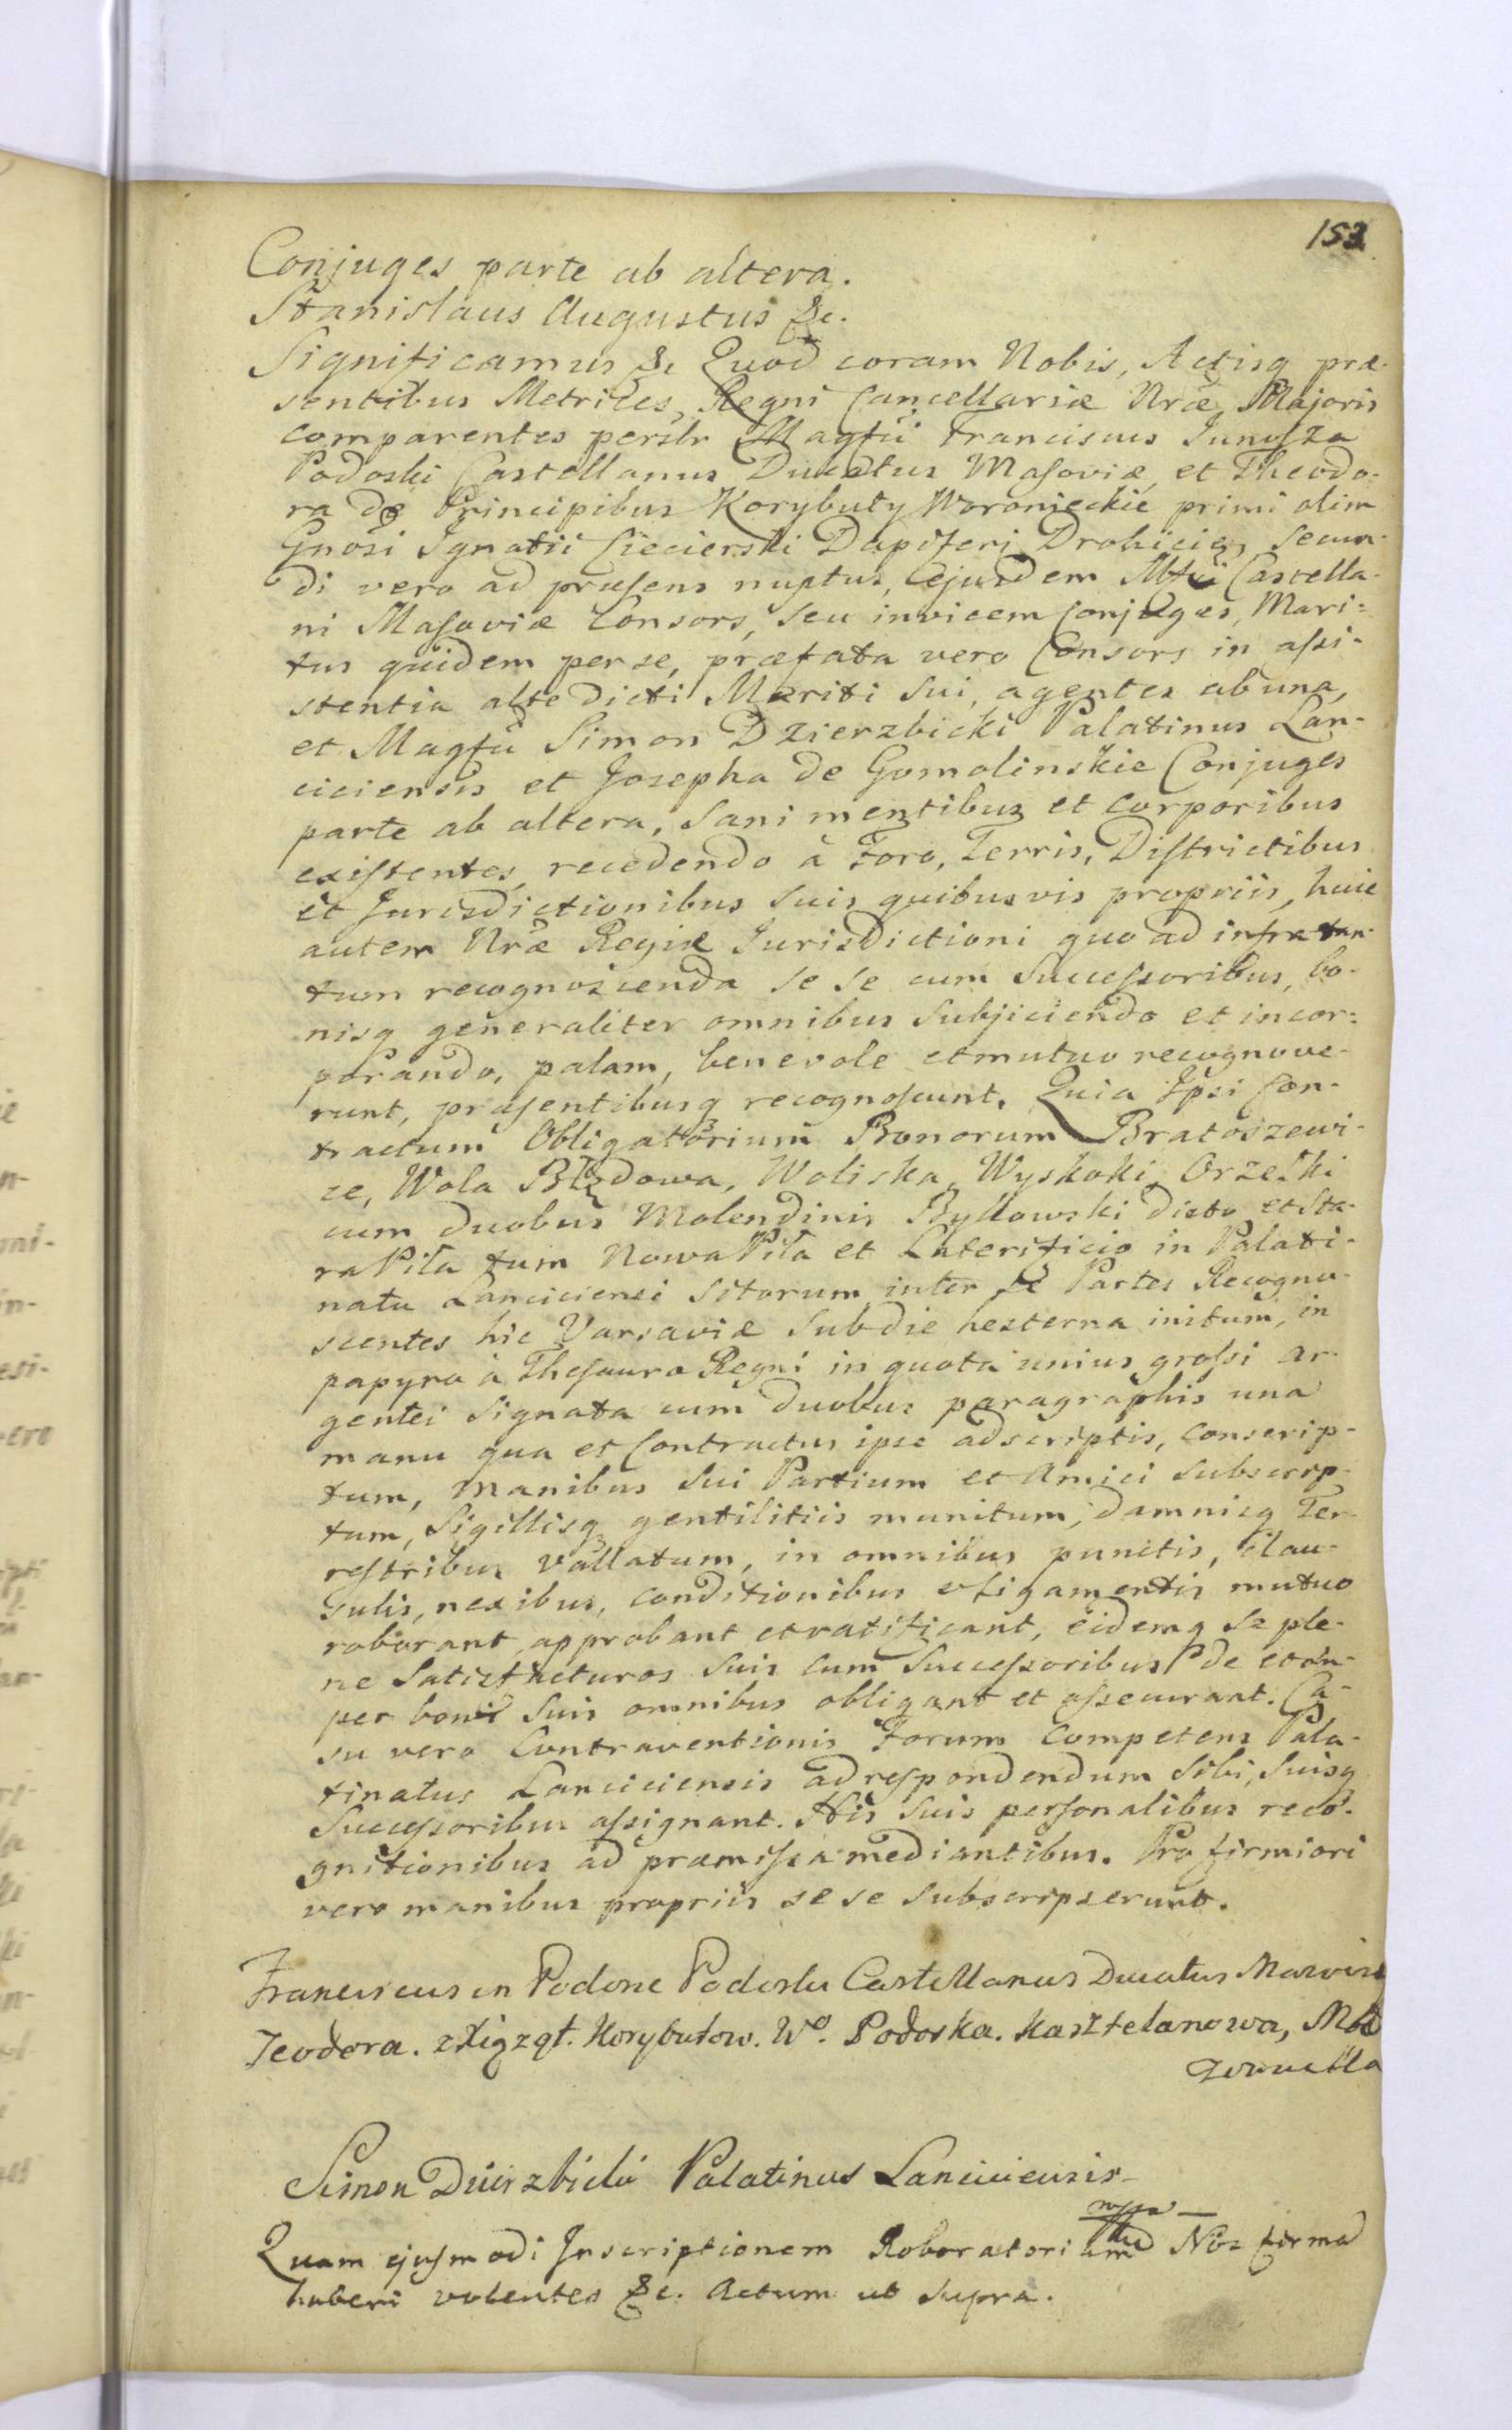 153
Conjuges parte ab altera.
Stanislaus Augustus &c.
Significamus &c Quod coram Nobis, Actisq præ-
sentibus Metrices Regni Cancellariæ Nræ Majoris
comparentes persltr Magfci Franciscus Junosza
Podoski Castellanus Ducatus Masoviæ et Theodo-
ra de Principibus Korybuty Woronieckie primi olim
Gnosi Ignatii Ciecierski Dapiferi Drohicien secun-
di vero ad præsens nuptus, ejusdem Mfci Castella-
ni Masoviæ Consors, seu invicem Conjuges, Mari-
tus quidem per se, præfata vero Consors in assi-
stentia alte dicti Mariti sui, agentes ab una,
et Magfci Simon Dzierzbicki Palatinus Lan-
ciciensis et Josepha de Gomolinskie Conjuges
parte ab altera, sani mentibus et corporibus
existentes, recedendo à Foro, Terris, Districtibus
et Jurisdictionibus suis quibusvis propriis, huic
autem Nræ Regiæ Jurisdictioni quo ad infra tan-
tum recognoscenda se se cum Successoribus, bo-
nisq generaliter omnibus subjiciendo et incor-
porando, palam, benevole et mutuo recognove-
runt, præsentibusq recognoscunt. Quia Ipsi Con-
tractum Obligatorium Bonorum Bratoszewi-
ce, Wola Błędowa, Woliska, Wyskoki, Orzeszki
cum duobus Molendinis Byllowski dicto et Sta-
ra Piła tum Nowa Piła et Laterificio in Palati-
natu Lanciciensi sitorum inter se Partes Recogno-
scentes hic Varsaviæ sub die hesterna initum, in
papyro à Thesauro Regni in quota unius grossi ar-
gentei signata cum duobus paragraphis una
manu qua et Contractus ipse adscriptis, conscrip-
tum, manibus sui Partium et Amici subscrip-
tum, Sigillisq gentilitiis munitum, damnisq Ter-
restribus vallatum, in omnibus punctis, clau-
sulis, nexibus, conditionibus et ligamentis mutuo
roborant, approbant et ratificant, eidemq se ple-
ne satisfacturos suis cum Successoribus de et su-
per bonis suis omnibus obligant et assecurant. Ca-
su vero Contraventionis Forum Competens Pala-
tinatus Lanciciensis ad respondendum sibi, suisq
Successoribus assignant. His suis personalibus reco-
gnitionibus ad præmissa mediantibus. Pro firmiori
vero manibus propriis se se subscripserunt.
Franciscus in Podone Podoski Castellanus Ducatus Mazoviæ
Teodora. z Xiążąt. Korybutow. Wo. Podoska. Kasztelanowa,
Simon Dzierzbicki Palatinus Lanciciensis
Quam ejusmodi Inscriptionem Roboratoriam Nos firma
haberi volentes &c. Actum ut supra.